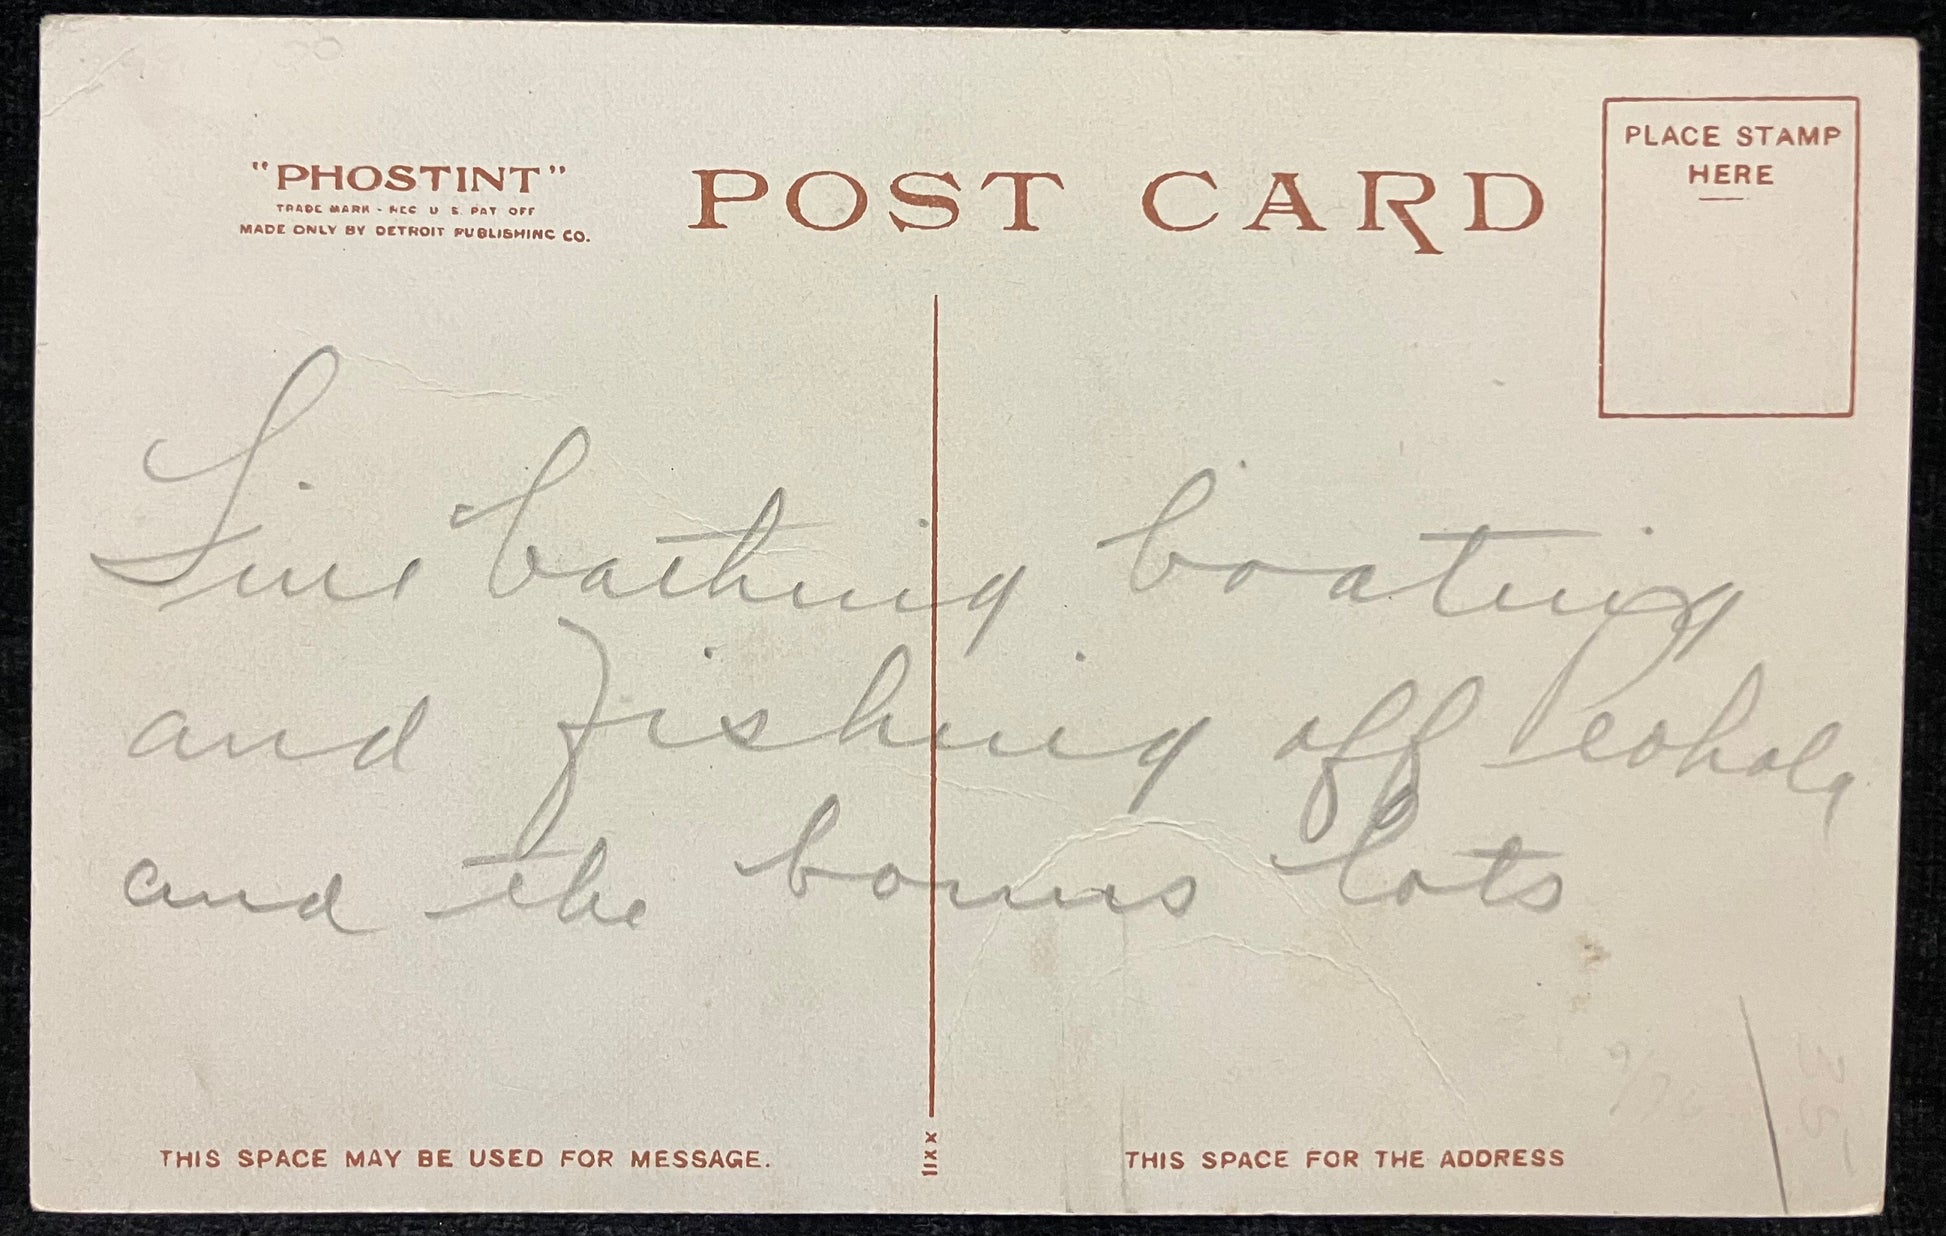 "PHOSTINT"
TRADE MARK - REG U S. PAT OFF
MADE ONLY BY DETROIT PUBLISHING CO.
POST CARD
PLACE STAMP
HERE
Fine bathing boating
and fishing off
and the bonus lots
THIS SPACE MAY BE USED FOR MESSAGE.
THIS SPACE FOR THE ADDRESS
35